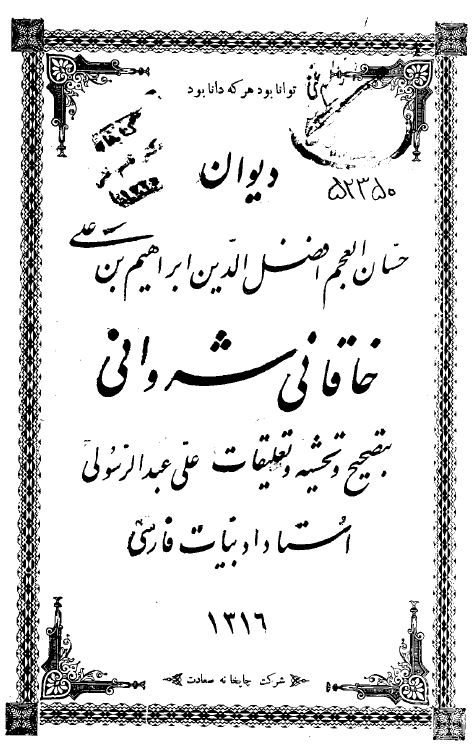 توانا بود هر که دانا بود
دیوان
۵۲۳۵۰
حسّان العجم افضل الدّین ابراهیم بن علی
خاقانی شروانی
بتصحیح و تحشیه و تعلیقات علی عبدالرّسولی
استاد ادبیّات فارسی
۱۳۱۶
شرکت چاپخانه سعادت